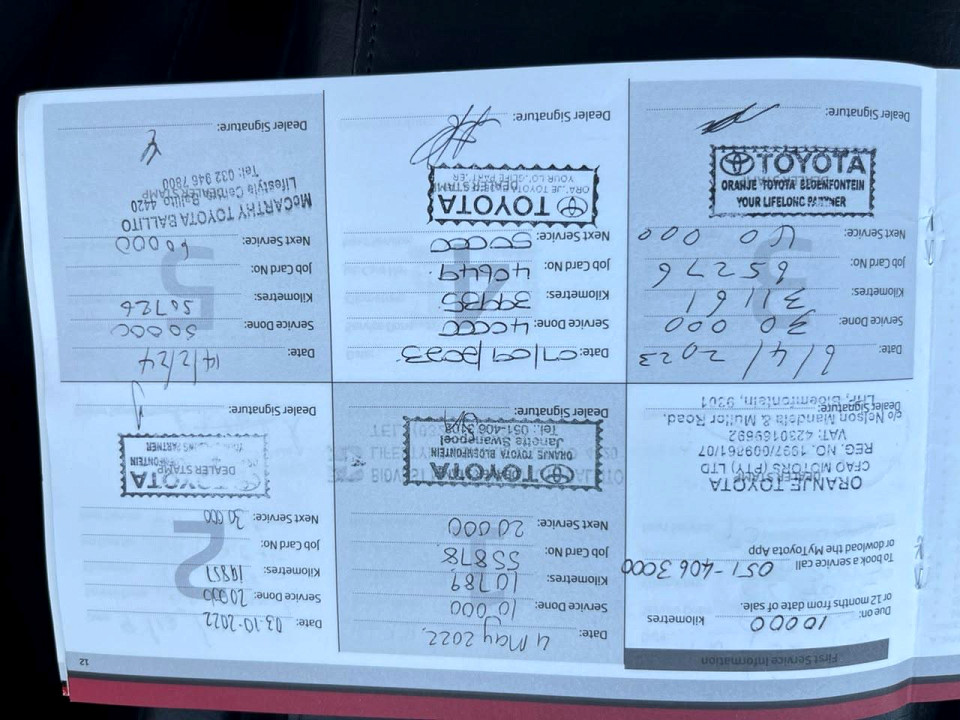 12
First Service Information
Due on: 10 000 kilometres
or 12 months from date of sale.
To book a service call 051-406 3000
or dowload the MyToyota App
ORANJE TOYOTA
CFAO MOTORS (PTY) LTD
REG. NO. 1937/009861/07
VAT: 4230169692
c/o Nelson Mandela & Muller Road,
Bloemfontein, 9301
Dealer Signature:
Date: 4 May 2022.
Service Done: 10 000
Kilometres: 10 789
Job Card No: 55878
Next Service: 20 000
TOYOTA
ORANJE TOYOTA BLOEMFONTEIN
Janette Swanepoel
Tel.: 051-406 3108
Dealer Signature:
2
Date: 03-10-2022
Service Done: 20 000
Kilometres: 19857
Job Card No:
Next Service: 30 000
TOYOTA
DEALER STAMP
Dealer Signature:
3
Date: 6/4/2023
Service Done: 30 000
Kilometres: 31161
Job Card No: 65276
Next Service: 40 000
TOYOTA
ORANJE TOYOTA BLOEMFONTEIN
YOUR LIFELONG PARTNER
Dealer Signature:
4
Date: 07/09/2023
Service Done: 40000
Kilometres: 39935
Job Card No: 40649
Next Service: 50000
TOYOTA
DEALER STAMP
ORANJE TOYOTA
Dealer Signature:
5
Date: 14/2/24
Service Done: 50000
Kilometres: 50726
Job Card No:
Next Service: 60000
McCARTHY TOYOTA BALLITO
DEALER STAMP
Lifestyle Centre Ballito 4420
Tel: 032 946 7800
Dealer Signature: